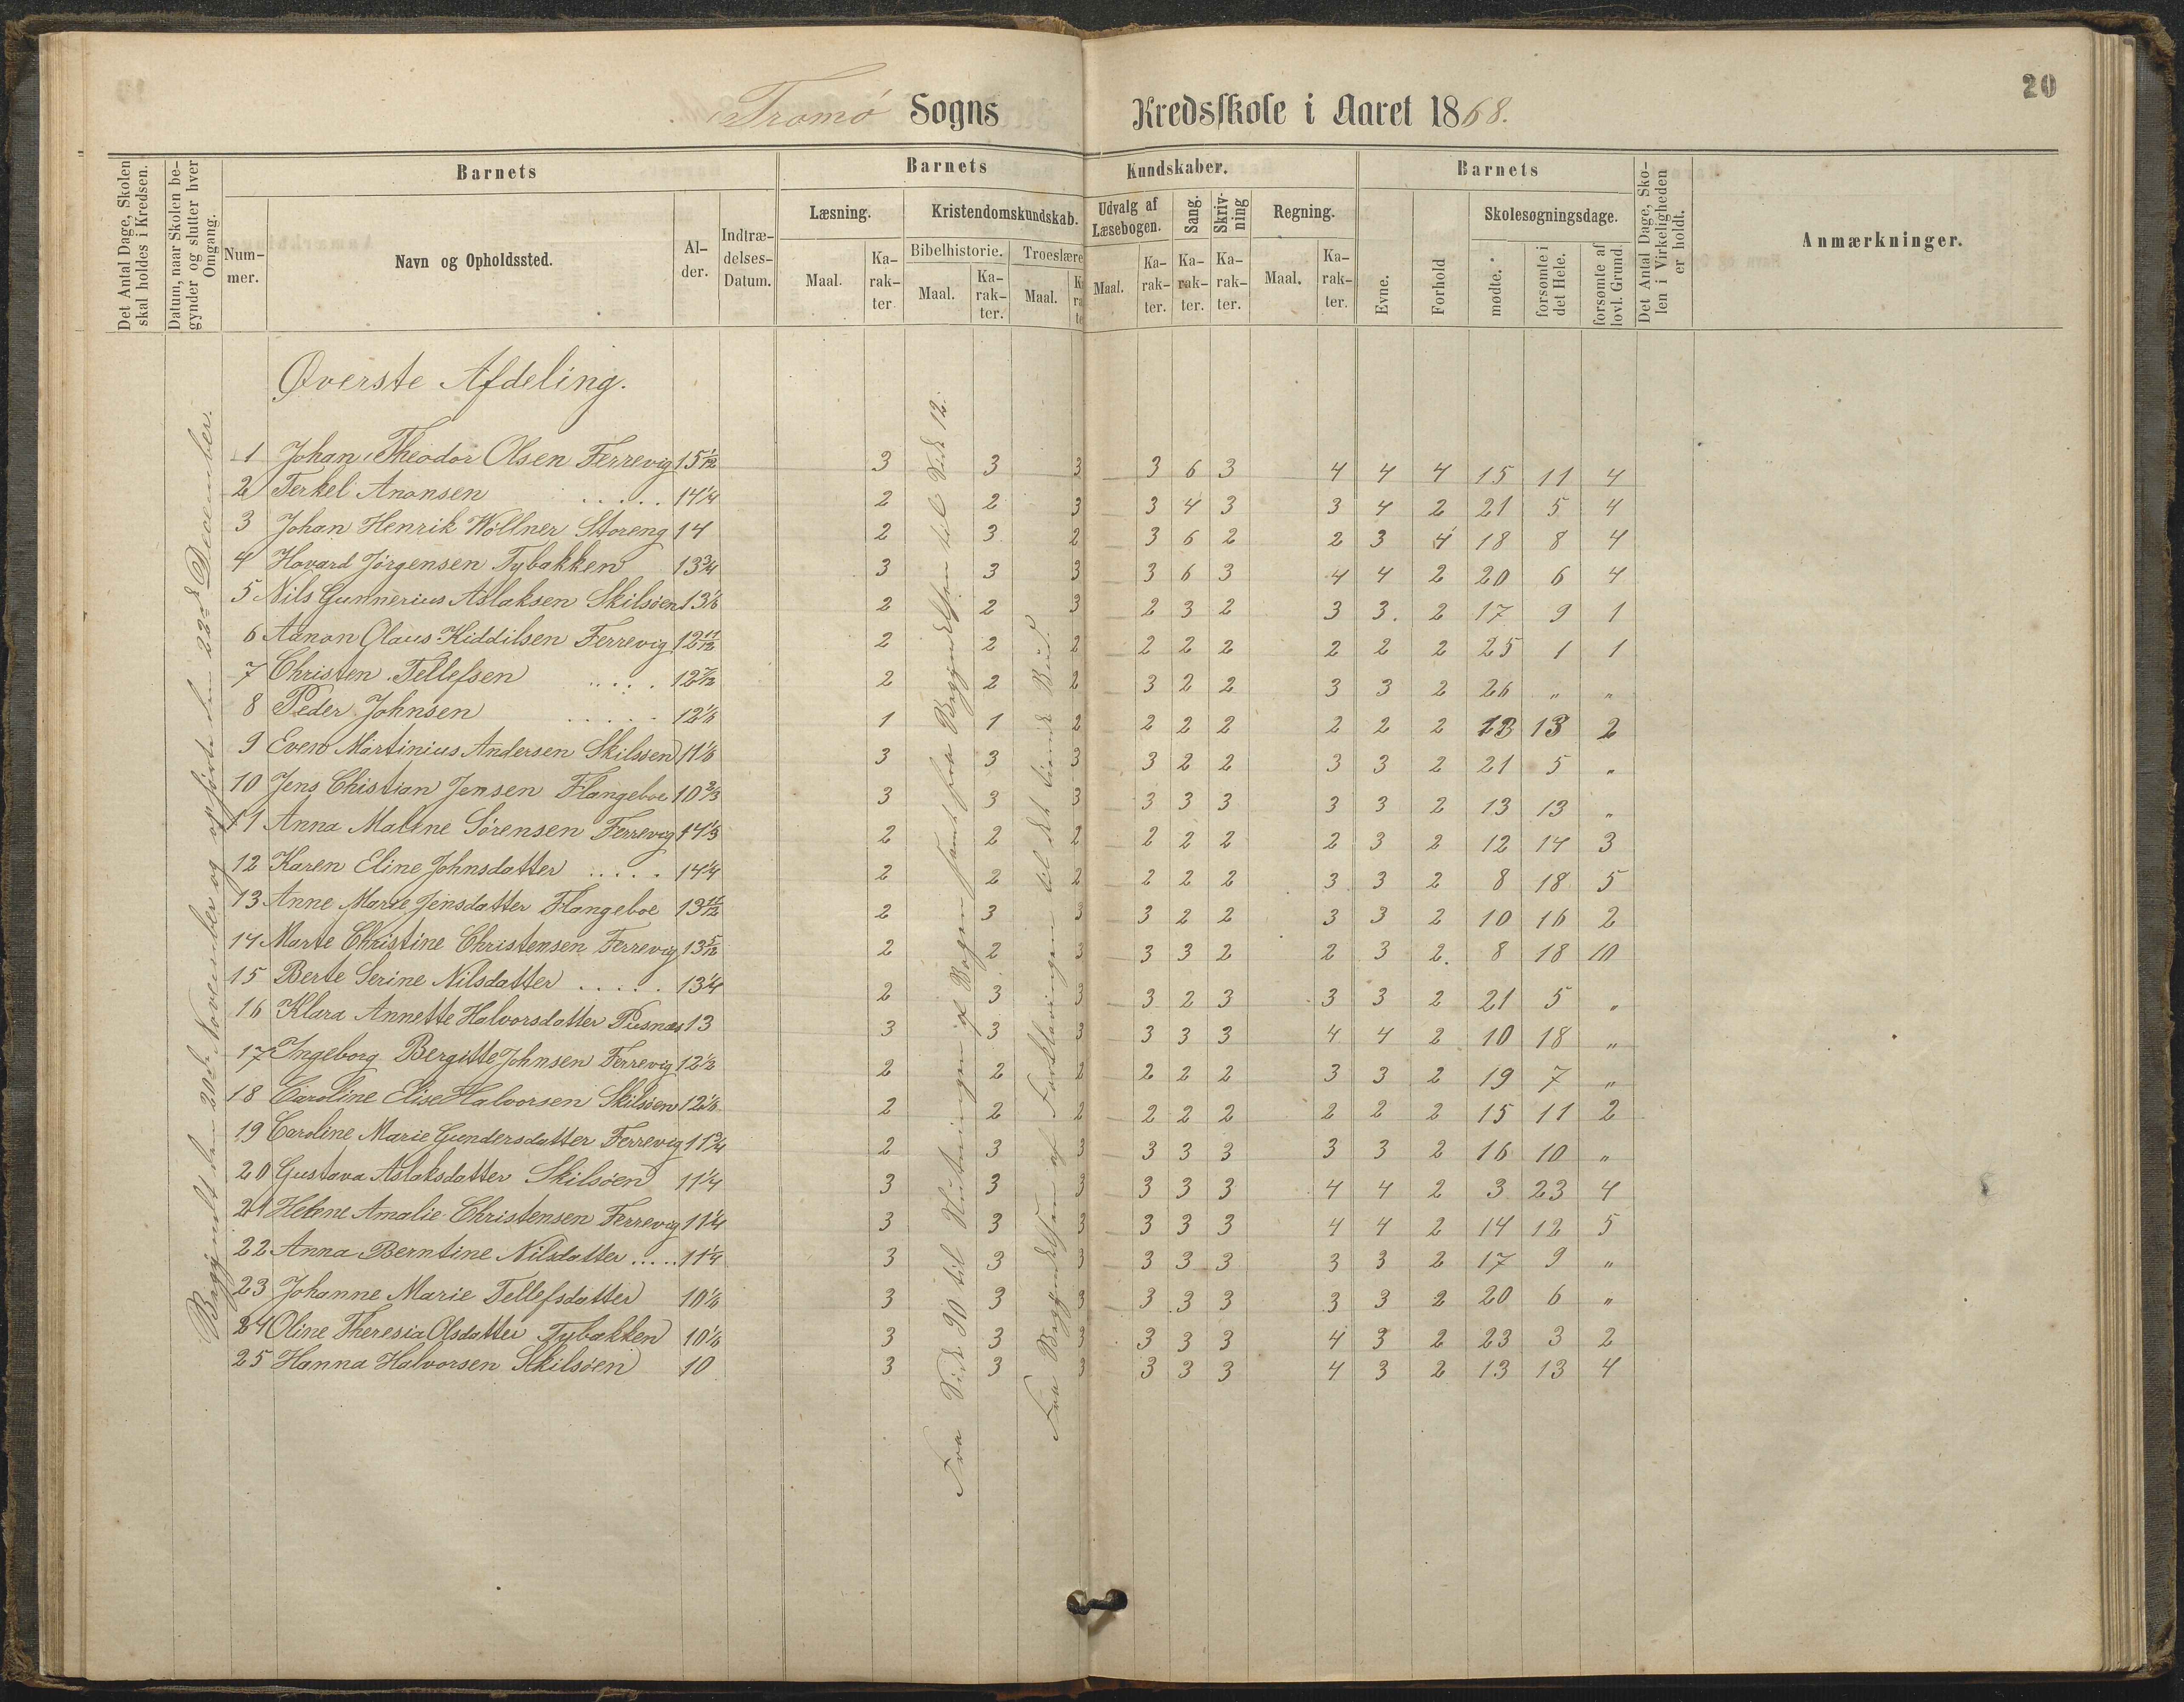 20
Tromø Sogns Kredsskole i Aaret 1868.
Det Antal Dage, Skolen skal holdes i Kredsen.
Datum, naar Skolen begynder og slutter hver Omgang.
Barnets
Nummer.
Navn og Opholdssted.
Alder.
Indtrædelses-Datum.
Barnets Kundskaber.
Læsning.
Maal.
Karakter
Kristendomskundskab.
Bibelhistorie.
Maal.
Karakter.
Troeslære
Maal.
Udvalg af Læsebogen.
Maal.
Karakter.
Sang.
Karakter.
Skrivning
Karakter.
Regning.
Maal.
Karakter.
Barnets
Evne.
Forhold
Skolesøgningsdage.
mødte.
forsømte i det Hele.
forsømte af lovl. Grund
Det Antal Dage, Skolen i Virkeligheden er holdt.
Anmærkninger.
Øverste Afdeling.
Begyndt den 20de November og opført den 22de December.
Fra Side 90 til Slutningen af Bogen samt fra Begyndelsen til Side 12.
Fra Begyndelsen af Forklaringen til det tiende Bud.
1 Johan Theodor Olsen Ferrevig 15 1/12 3 3 3 3 6 3 4 4 4 15 11 4
2 Terkel Anonsen ..... 14 1/4 2 2 3 3 4 3 3 4 2 21 5 4
3 Johan Henrik Wöllner Storeng 14 2 3 2 3 6 2 2 3 4 18 8 4
4 Havard Jørgensen Tybakken 13 3/4 3 3 3 3 6 3 4 4 2 20 6 4
5 Nils Gunnerius Aslaksen Skilsøen 13 1/6 2 2 3 2 3 2 3 3. 2 17 9 1
6 Aanon Olaus Kiddilsen Ferrevig 12 11/12 2 2 2 2 2 2 2 2 2 25 1 1
7 Christen Tellefsen ..... 12 7/12 2 2 2 3 2 2 3 3 2 26 " "
8 Peder Johnsen ..... 12 1/6 1 1 2 2 2 2 2 2 2 13 13 2
9 Even Martinius Andersen Skilsøen 11 1/6 3 3 3 3 2 2 3 3 2 21 5 "
10 Jens Christian Jensen Flangeboe 10 2/3 3 3 3 3 3 3 3 3 2 13 13 "
11 Anna Maline Sørensen Ferrevig 14 1/3 2 2 2 2 2 2 2 3 2 12 14 3
12 Karen Eline Johnsdatter ..... 14 1/4 2 2 2 2 2 2 3 3 2 8 18 5
13 Anne Marie Jensdatter Flangeboe 13 11/12 2 3 3 3 2 2 3 3 2 10 16 2
14 Marte Christine Christensen Ferrevig 13 5/12 2 2 3 3 3 2 2 3 2. 8 18 10
15 Berte Serine Nilsdatter ..... 13 1/4 2 3 3 3 2 3 3 3 2 21 5 "
16 Klara Annette Halvorsdatter Pusnes 13 3 3 3 3 3 3 4 4 2 10 18 "
17 Ingeborg Bergitte Johnsen Ferrevig 12 1/2 2 2 2 2 2 2 3 3 2 19 7 "
18 Caroline Elise Halvorsen Skilsøen 12 1/6 2 2 2 2 2 2 2 2 2 15 11 2
19 Caroline Marie Gundersdatter Ferrevig 11 3/4 2 3 3 3 3 3 3 3 2 16 10 "
20 Gustava Aslaksdatter Skilsøen 11 1/4 3 3 3 3 3 3 4 4 2 3 23 4
21 Helene Amalie Christensen Ferrevig 11 1/4 3 3 3 3 3 3 4 4 2 14 12 5
22 Anna Berntine Nilsdatter ..... 11 1/4 3 3 3 3 3 3 3 3 2 17 9 "
23 Johanne Marie Tellefsdatter 10 1/6 3 3 3 3 3 3 3 3 2 20 6 "
24 Oline Theresia Olsdatter Tybakken 10 1/6 3 3 3 3 3 3 4 3 2 23 3 2
25 Hanna Halvorsen Skilsøen 10 3 3 3 3 3 3 4 3 2 13 13 4